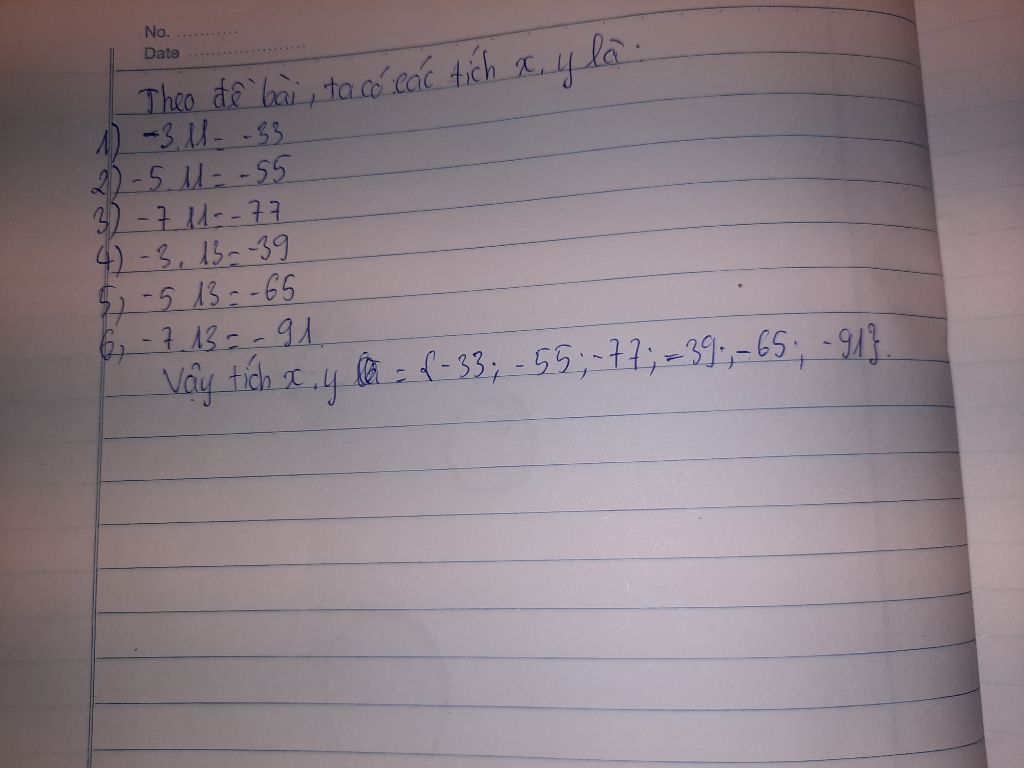 No. ............
Date ......................
Theo đề bài, ta có các tích x.y là:
1) -3.11= -33
2) -5.11= -55
3) -7.11= -77
4) -3.13= -39
5, -5.13= -65
6, -7.13= -91.
Vậy tích x.y = {-33; -55; -77; -39; -65; -91}.